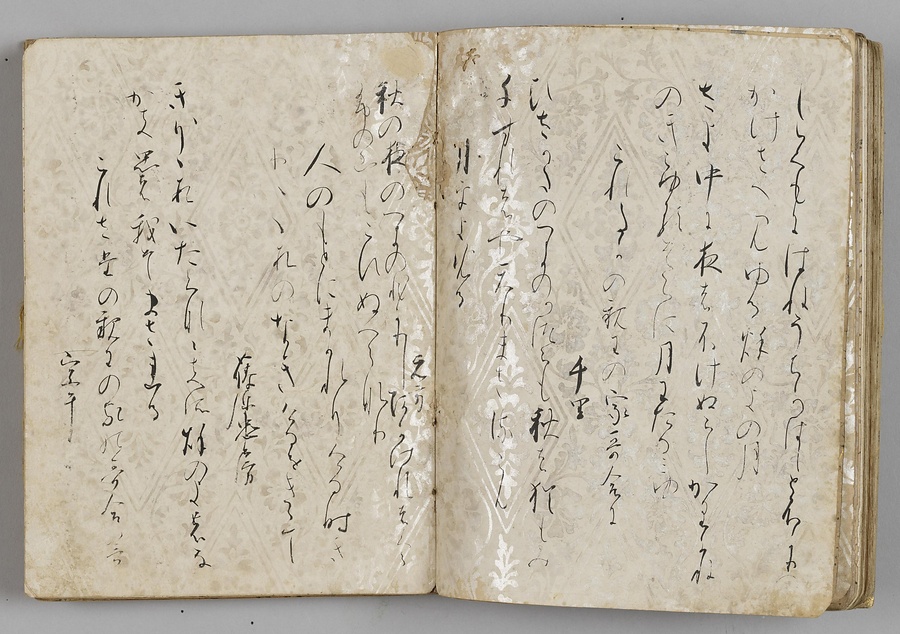 しらくもにはねうちかはしとふかりの
かけさへみゆる秋のよの月
さよ中に夜はふけぬらしかりかね
のきこゆるそらに月わたるみゆ
これさたの親王の家哥合に
千里
ひさかたの月のかつらも秋は猶もみ
ちすれはやてりまさるらん
月をよめる
元方
秋の夜の月のひかりしあかけれはくら
ふの山もこえぬへらなり
人のもとにまかれりける時き
り〳〵すのなきけるをきゝて
藤原忠房
きり〳〵すいたくなゝきそ秋の夜のな
かき思は我そまされる
これさたの親王の家の哥合哥
宗于